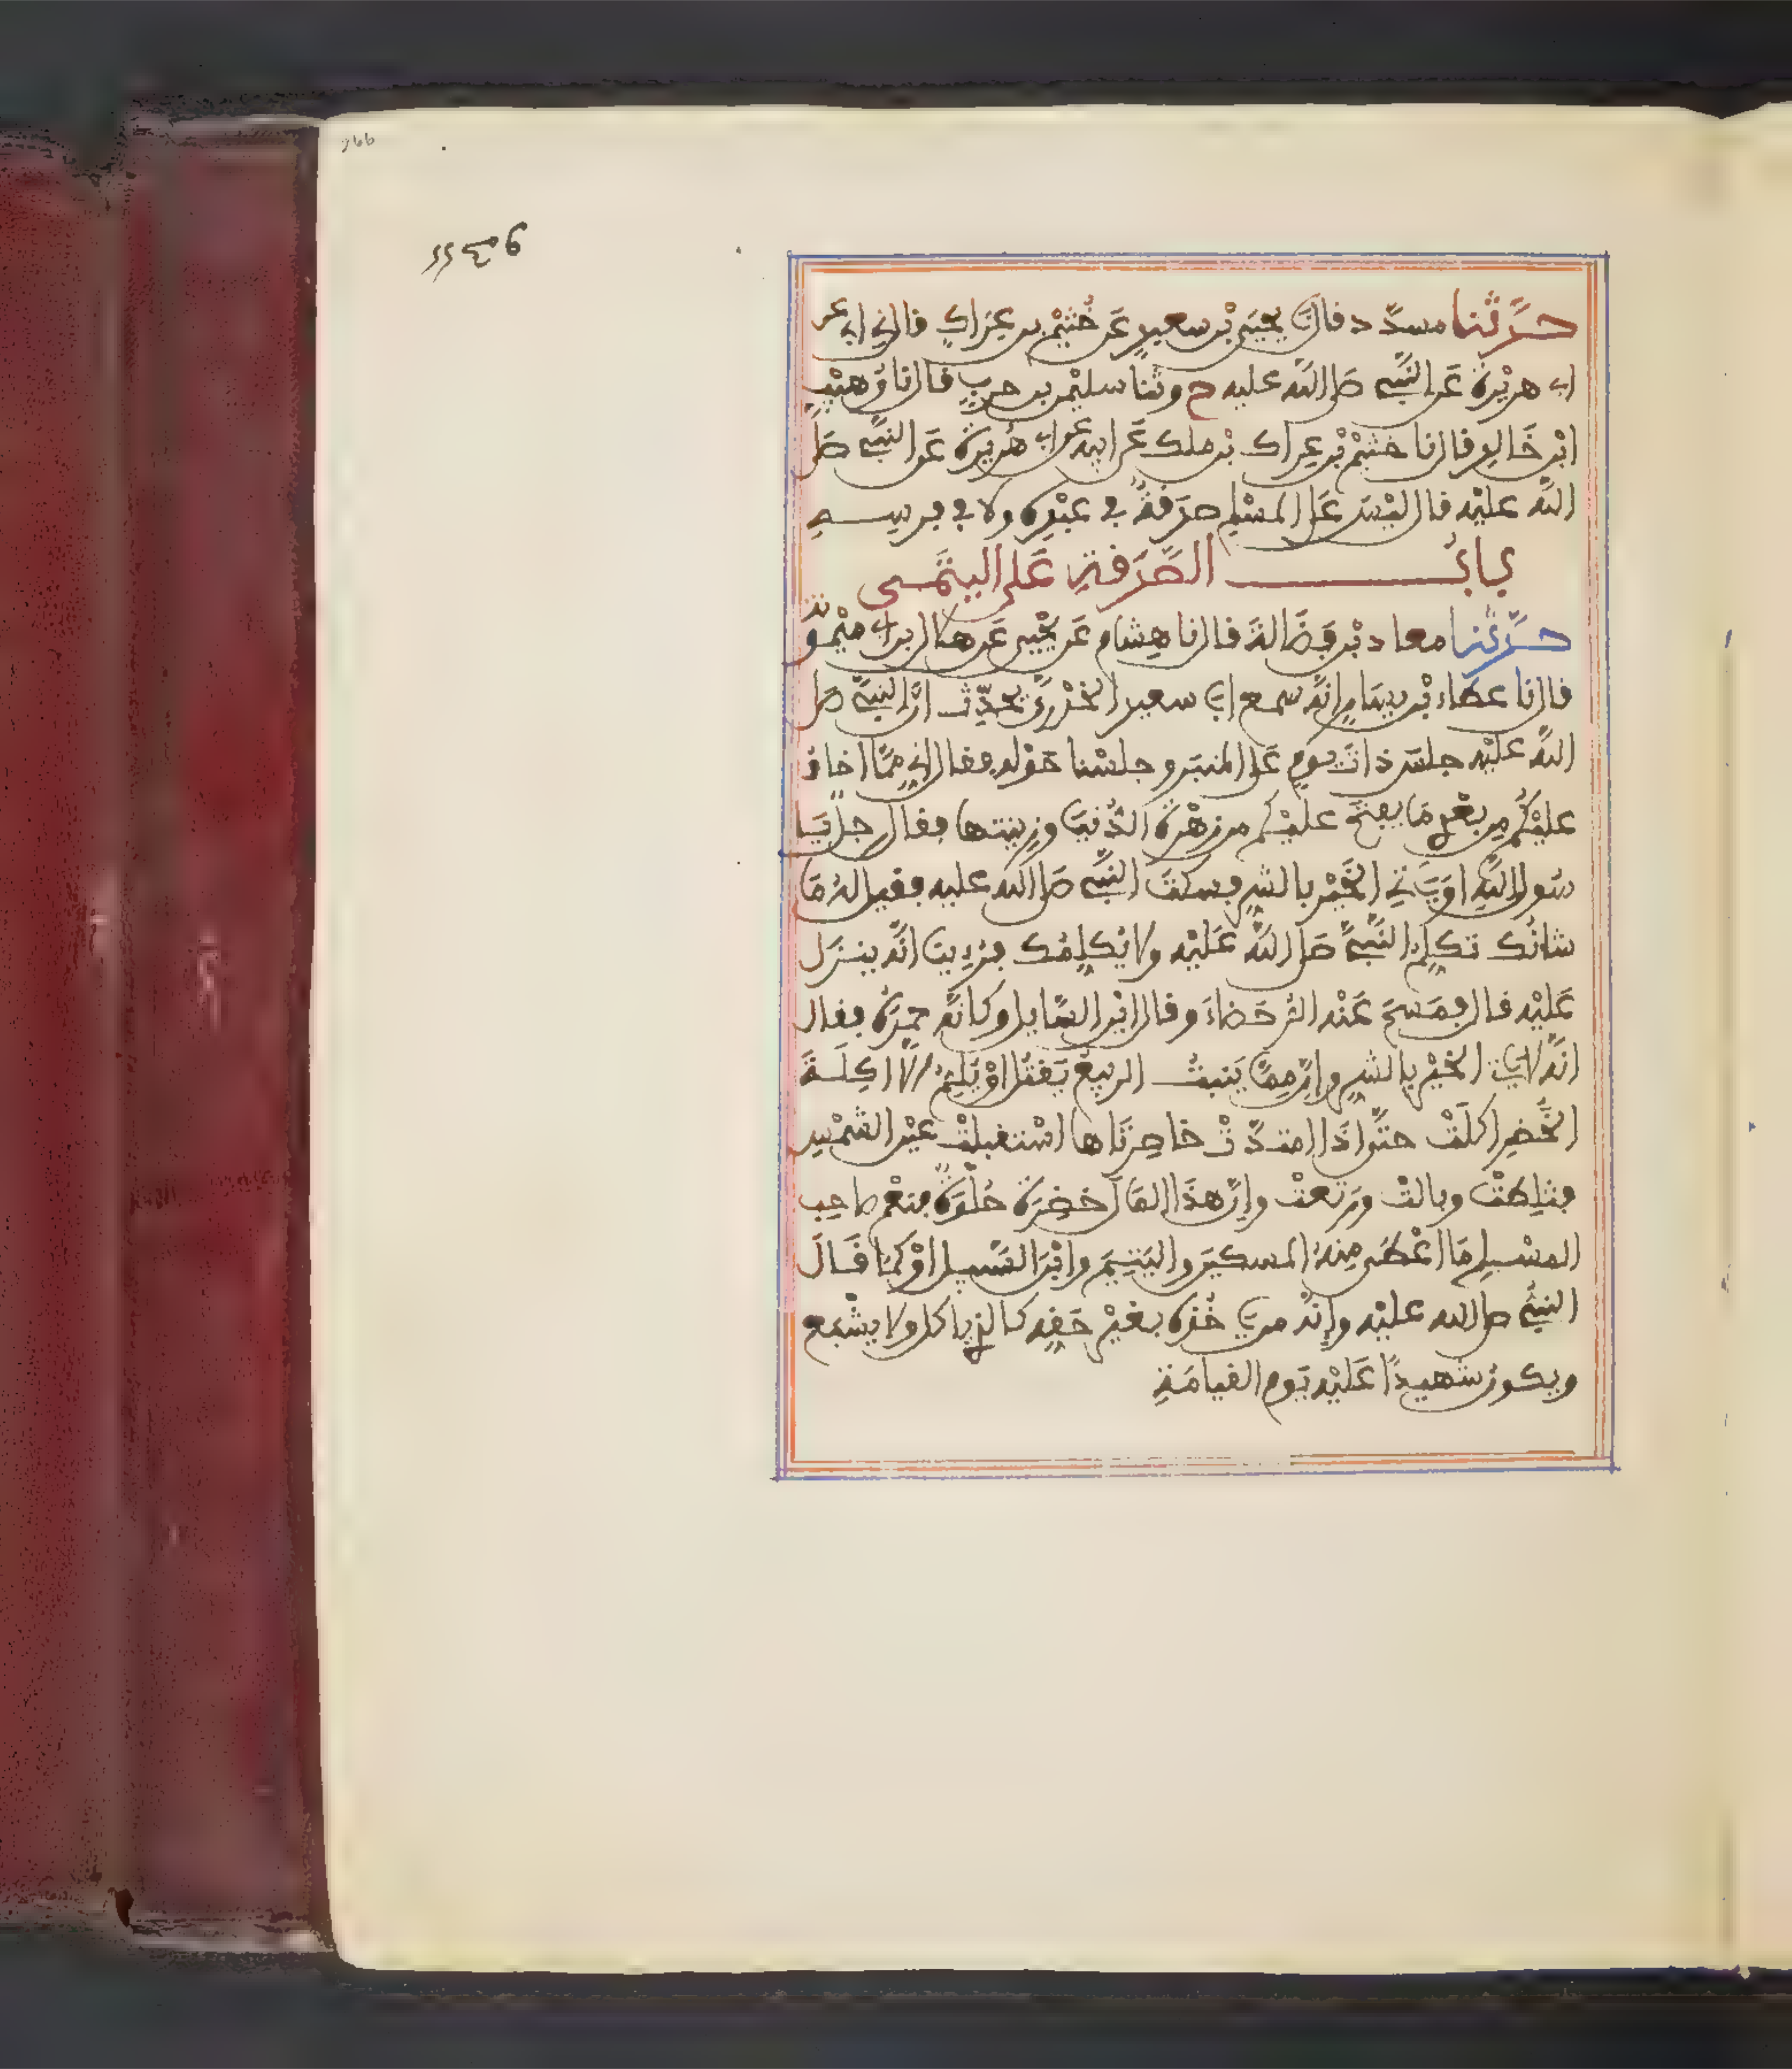 حدثنا مسدد قال نا يحيى بن سعيد عن خثيم بن عراك قال ني ابي عن
ابي هريرة عن النبي صلى الله عليه ح وثنا سليمن بن حرب قال نا وهيب
ابن خالد قال نا خثيم بن عراك بن ملك عن ابيه عن ابي هريرة عن النبي صلى
الله عليه قال ليس على المسلم صدقة في عبده ولا في فرسه
باب الصدقة على اليتمى
حدثنا معاذ بن فضالة قال نا هشام عن يحيى عن هلال بن ابي ميمونة
قال نا عطاء بن يسار انه سمع ابي سعيد الخدري يحدث ان النبي صلى
الله عليه جلس ذات يوم على المنبر وجلسنا حوله فقال اني مما اخاف
عليكم من بعدي ما يفتح عليكم من زهرة الدنيا وزينتها فقال رجل يا
رسول الله او ياتي الخير بالشر فسكت النبي صلى الله عليه فقيل له ما
شانك تكلم النبي صلى الله عليه ولا يكلمك فرءينا انه ينزل
عليه قال فمسح عنه الرحضاء وقال اين السايل وكانه حمده فقال
انه لا ياتي الخير بالشر وان مما ينبت الربيع يقتل او يلم الا اكلة
الخضر اكلت حتى اذا امتدت خاصرتاها استقبلت عين الشمس
فثلطت وبالت ورتعت وان هذا المال خضرة حلوة فنعم صاحب
المسلم ما اعطى منه المسكين واليتيم وابن السبيل او كما قال
النبي صلى الله عليه وانه من ياخذه بغير حقه كالذي ياكل ولا يشبع
ويكون شهيدا عليه يوم القيامة